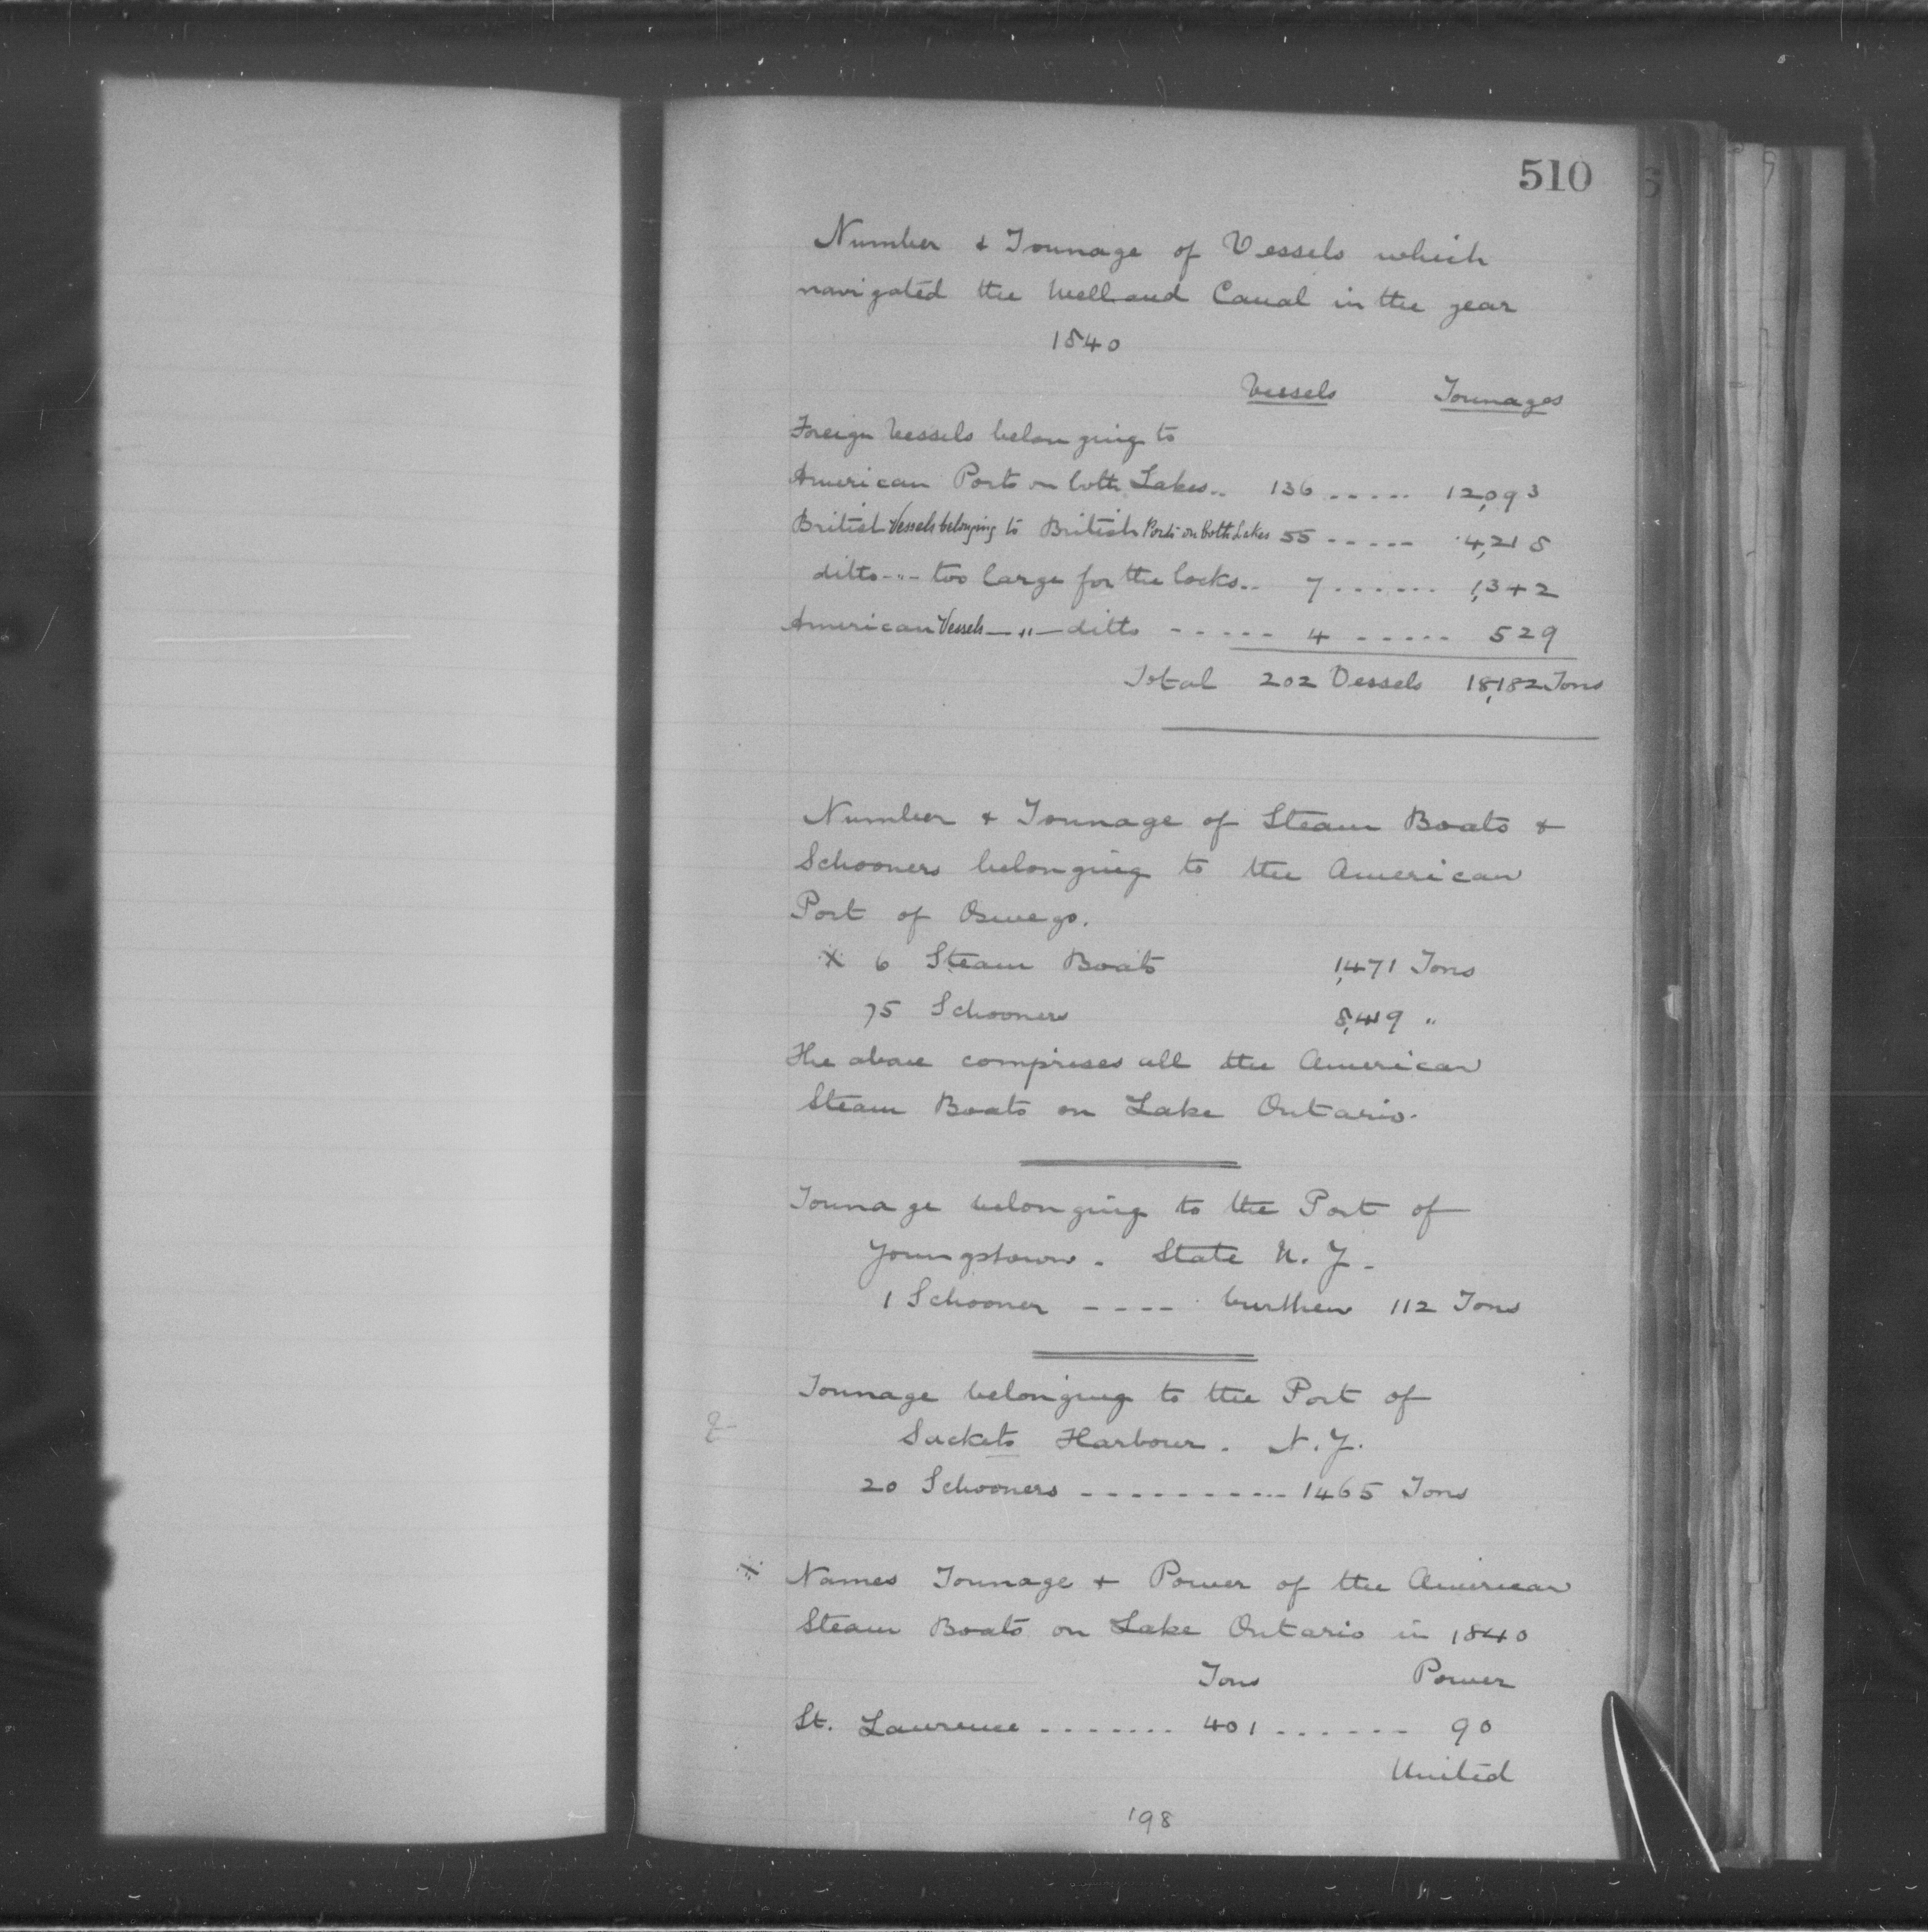 510
Number & Tonnage of Vessels which
navigated the Welland Canal in the year
1840
Vessels Tonnages
Foreign Vessels belonging to
American Ports on both Lakes.. 136 ..... 12,093
British Vessels belonging to British Ports on both Lakes 55 ..... 4,218
ditto --- too large for the locks.. 7 ...... 1,342
American Vessels —"— ditto ----- 4 ...... 529
Total 202 Vessels 18,182 Tons
Number & Tonnage of Steam Boats &
Schooners belonging to the American
Port of Oswego.
X 6 Steam Boats 1,471 Tons
75 Schooners 8,419 "
The above comprises all the American
Steam Boats on Lake Ontario.
Tonnage belonging to the Port of
Youngstown. State N.Y.
1 Schooner ---- burthen 112 Tons
Tonnage belonging to the Port of
Sackets Harbour. N.Y.
20 Schooners ---------- 1465 Tons
X Names Tonnage & Power of the American
Steam Boats on Lake Ontario in 1840
Tons Power
St. Lawrence ....... 401 ...... 90
United
198